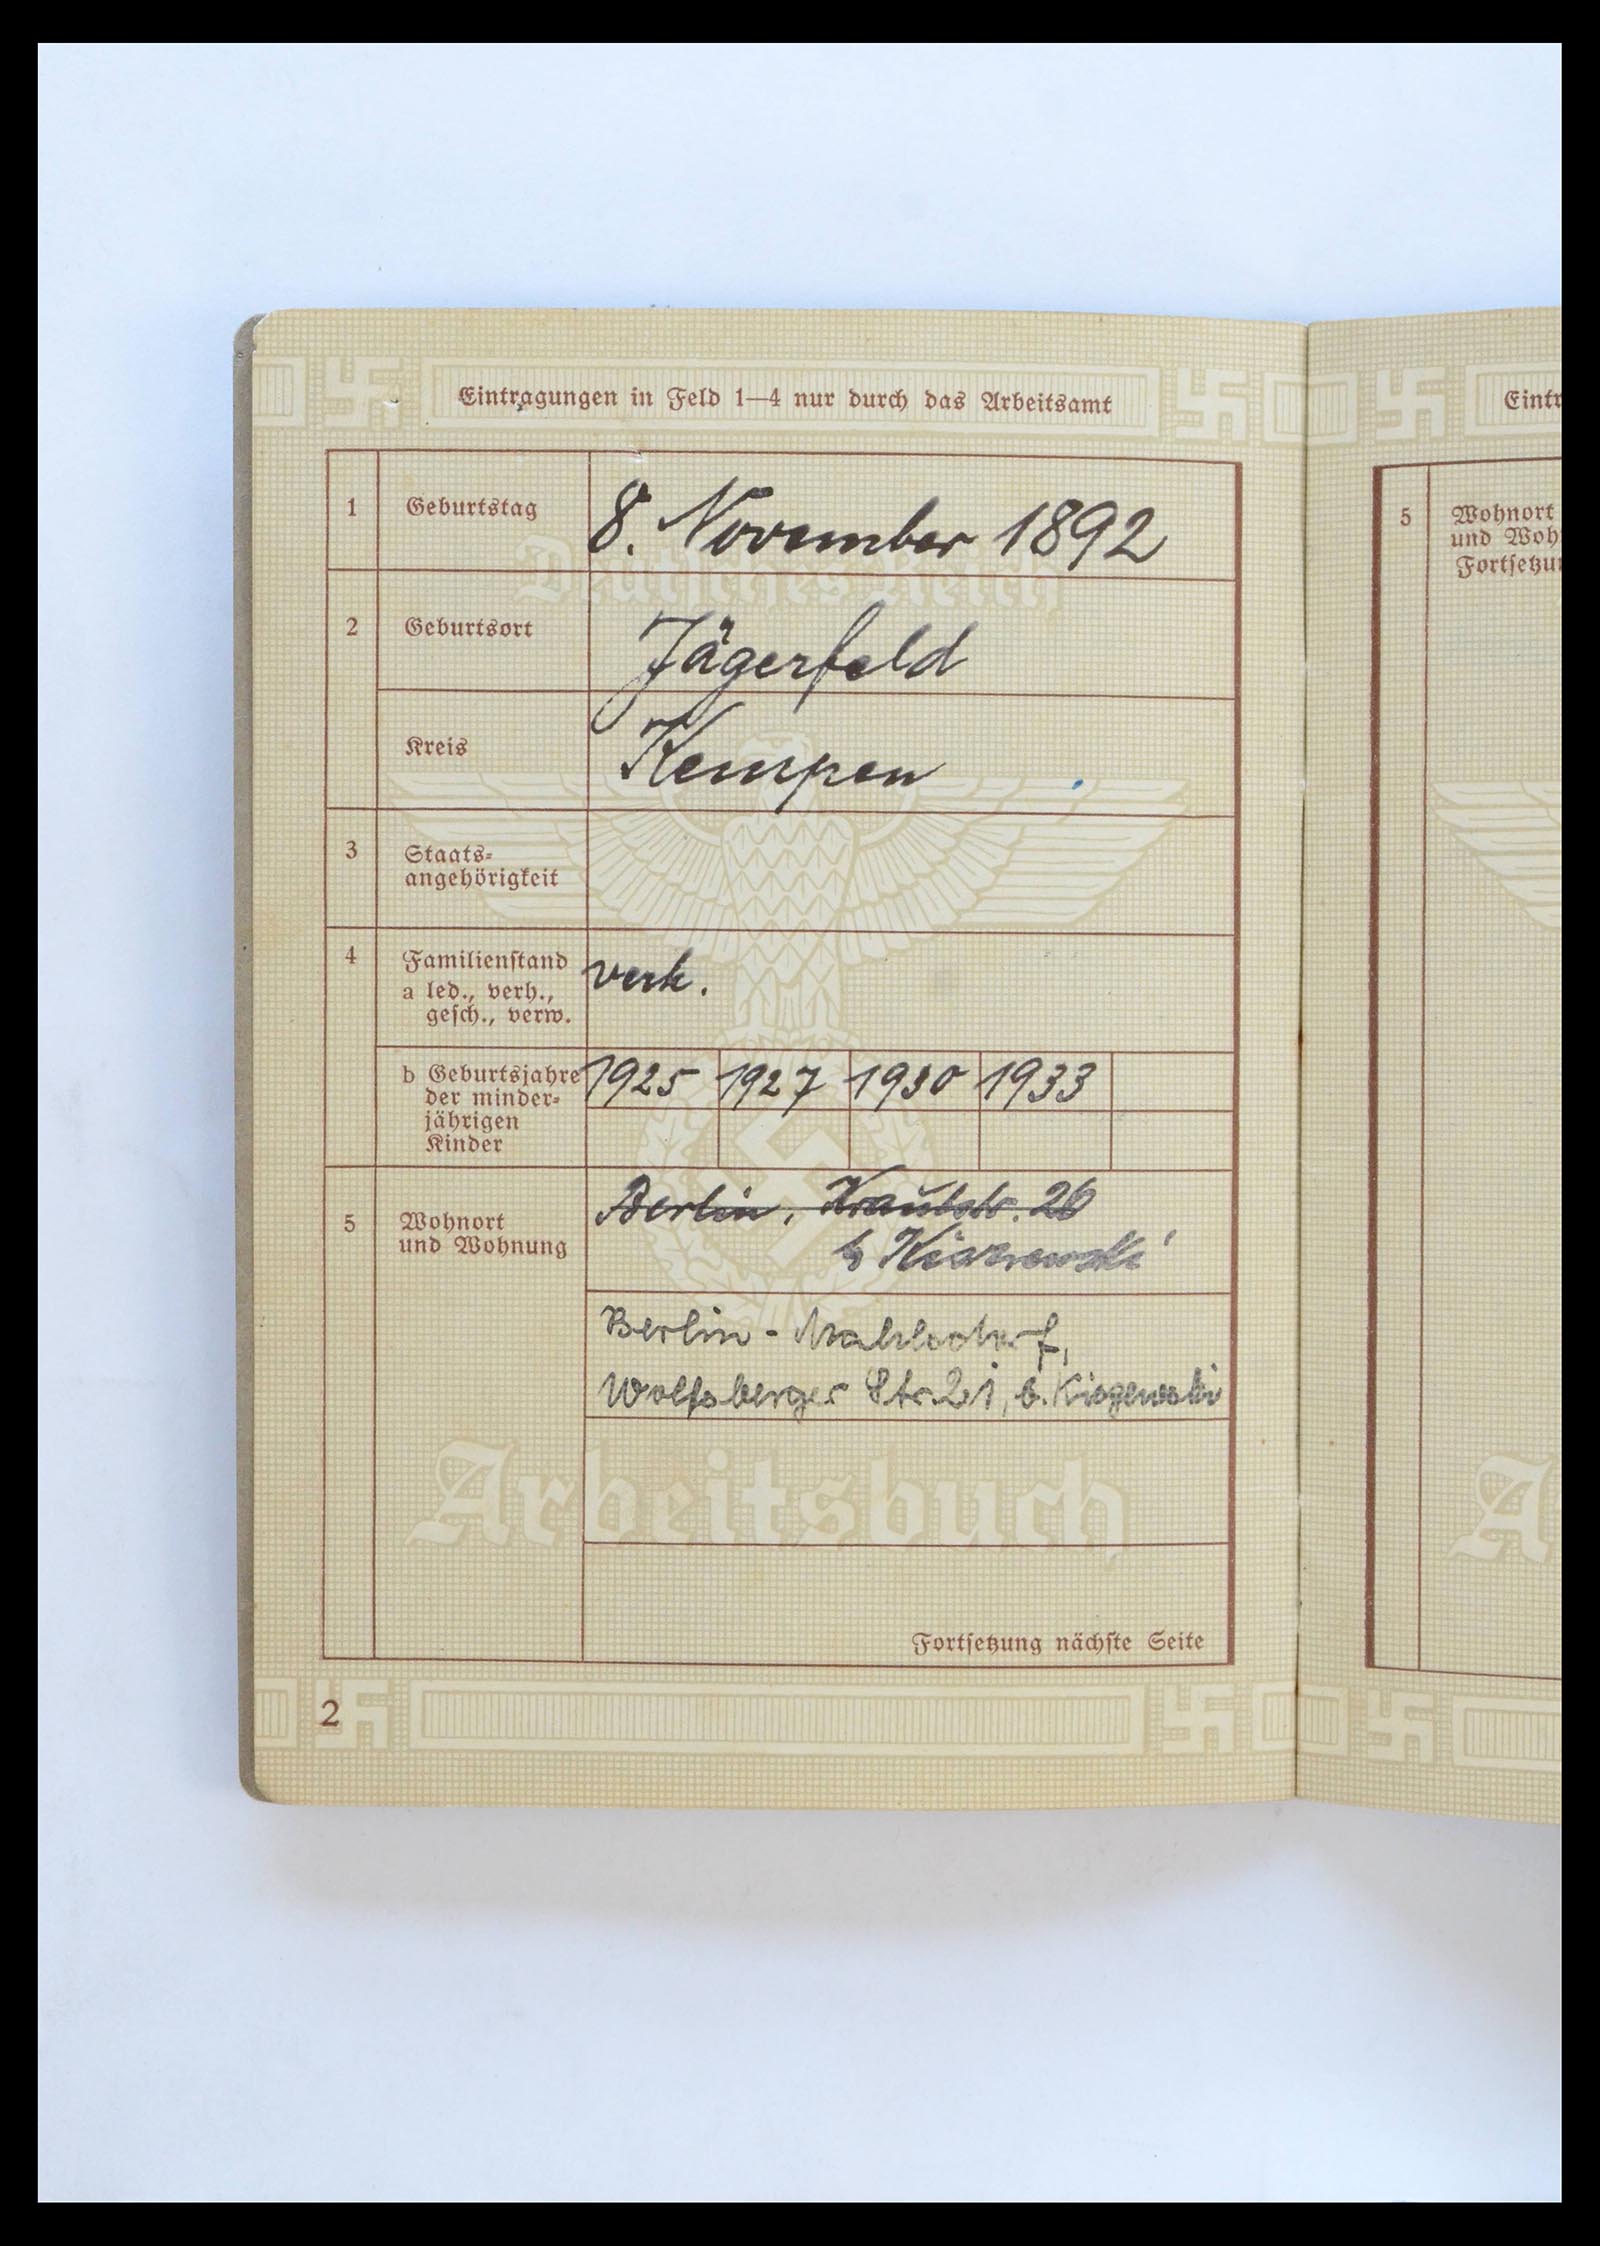 Eintragungen in Feld 1—4 nur durch das Arbeitsamt
1 Geburtstag 8. November 1892
Deutsches Reich
2 Geburtsort Jägerfeld
Kreis Kempen
3 Staats-
angehörigkeit
4 Familienstand verh.
a led., verh.,
gesch., verw.
b Geburtsjahre 1925 1927 1930 1933
der minder-
jährigen
Kinder
5 Wohnort Berlin, Krautstr. 26
und Wohnung b
Berlin - Mahlsdorf,
Wolfsberger Str. 21, b.
Arbeitsbuch
Fortsetzung nächste Seite
2
Eintr
5 Wohnort
und Woh
Fortsetzu
A